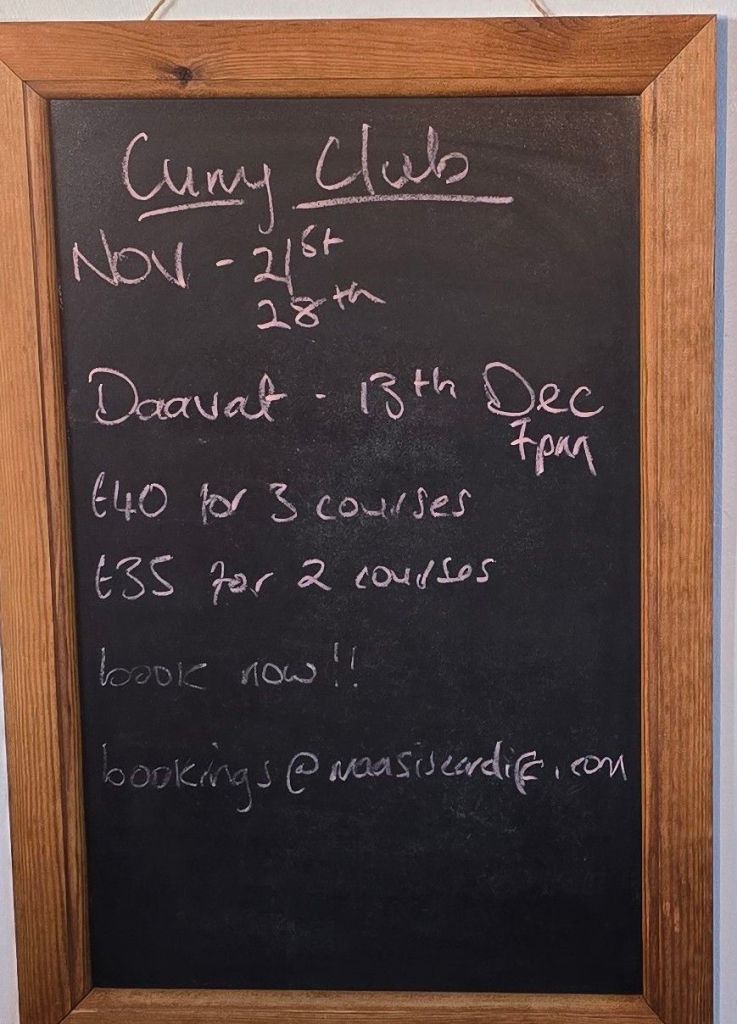 Curry Club
Nov - 21st
28th
Daavat - 13th Dec
7pm
£40 for 3 courses
£35 for 2 courses
book now!!
bookings@maasiscardiff.com